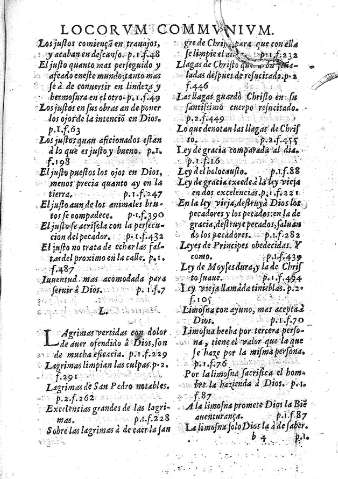 LOCORVM COMMVNIVM.
Los justos comiençã en trauajos,
y acaban en descãso. p.1.f.48
El justo quanto mas perseguido y
afeado en este mundo, tanto mas
se à de conuersir en lindeza y
hermosura en el otro. p.1.f.49
Los justos en sus obras an de poner
los ojos de la intenciõ en Dios.
p.1.f.63
Los justos quan aficionados estan
à lo que es justo y bueno. p.1.
f.198
El justo puestos los ojos en Dios,
menos precia quanto ay en la
tierra. p.1.f.247
El justo aun de los animales bru-
tos se compadece. p.1.f.390
El justo se acrisola con la persecu-
cion del pecador. p.1.f.432
El justo no trata de echar las fal-
tas del proximo en la calle. p.1.
f.487
Iuuentud mas acomodada para
seruir à Dios. p.1.f.7
L.
LAgrimas vertidas con dolor
de auer ofendido à Dios, son
de mucha eficacia. p.1.f.229
Lagrimas limpian las culpas. p.2.
f.291
Lagrimas de San Pedro notables.
p.2.f.262
Excelencias grandes de las lagri-
mas. p.1.f.228
Sobre las lagrimas à de caer la san
gre de Christo, para que con ella
se limpie el p.1.f.232
Llagas de Christo
ludas despues de resucitado. p.2
f.446
Las llagas guardò Christo en su
santissimo cuerpo resucitado.
p.2.f.449
Lo que denotan las llagas de Chris
to. p.2.f.455
Ley de gracia comparada al dia.
p.1.f.16
Ley del holocausto. p.1.f.88
Ley de gracia excede à la ley vieja
en dos excelencias. p.1.f.221
En la ley vieja, destruyà Dios los
pecadores y los pecados: en la de
gracia, destruye pecados, saluan
do los pecadores. p.1.f.282
Leyes de Principes obedecidas. Y
como. p.1.f.439
Ley de Moyses dura, y la de Chris
to suaue. p.1.f.494
Ley vieja llamada tinieblas. p.2.
f.105
Limosna con ayuno, mas acepta à
Dios. p.1.f.70
Limosna hecha por tercera perso-
na, tiene el valor que la que
se haze por la misma persona.
p.1.f.76
Por la limosna sacrifica el hom-
bre la hazienda à Dios. p.1.
f.87
A la limosna promete Dios la Biẽ
auenturança. p.1.f.87
La limosna solo Dios la à de saber.
b 4 p.1.